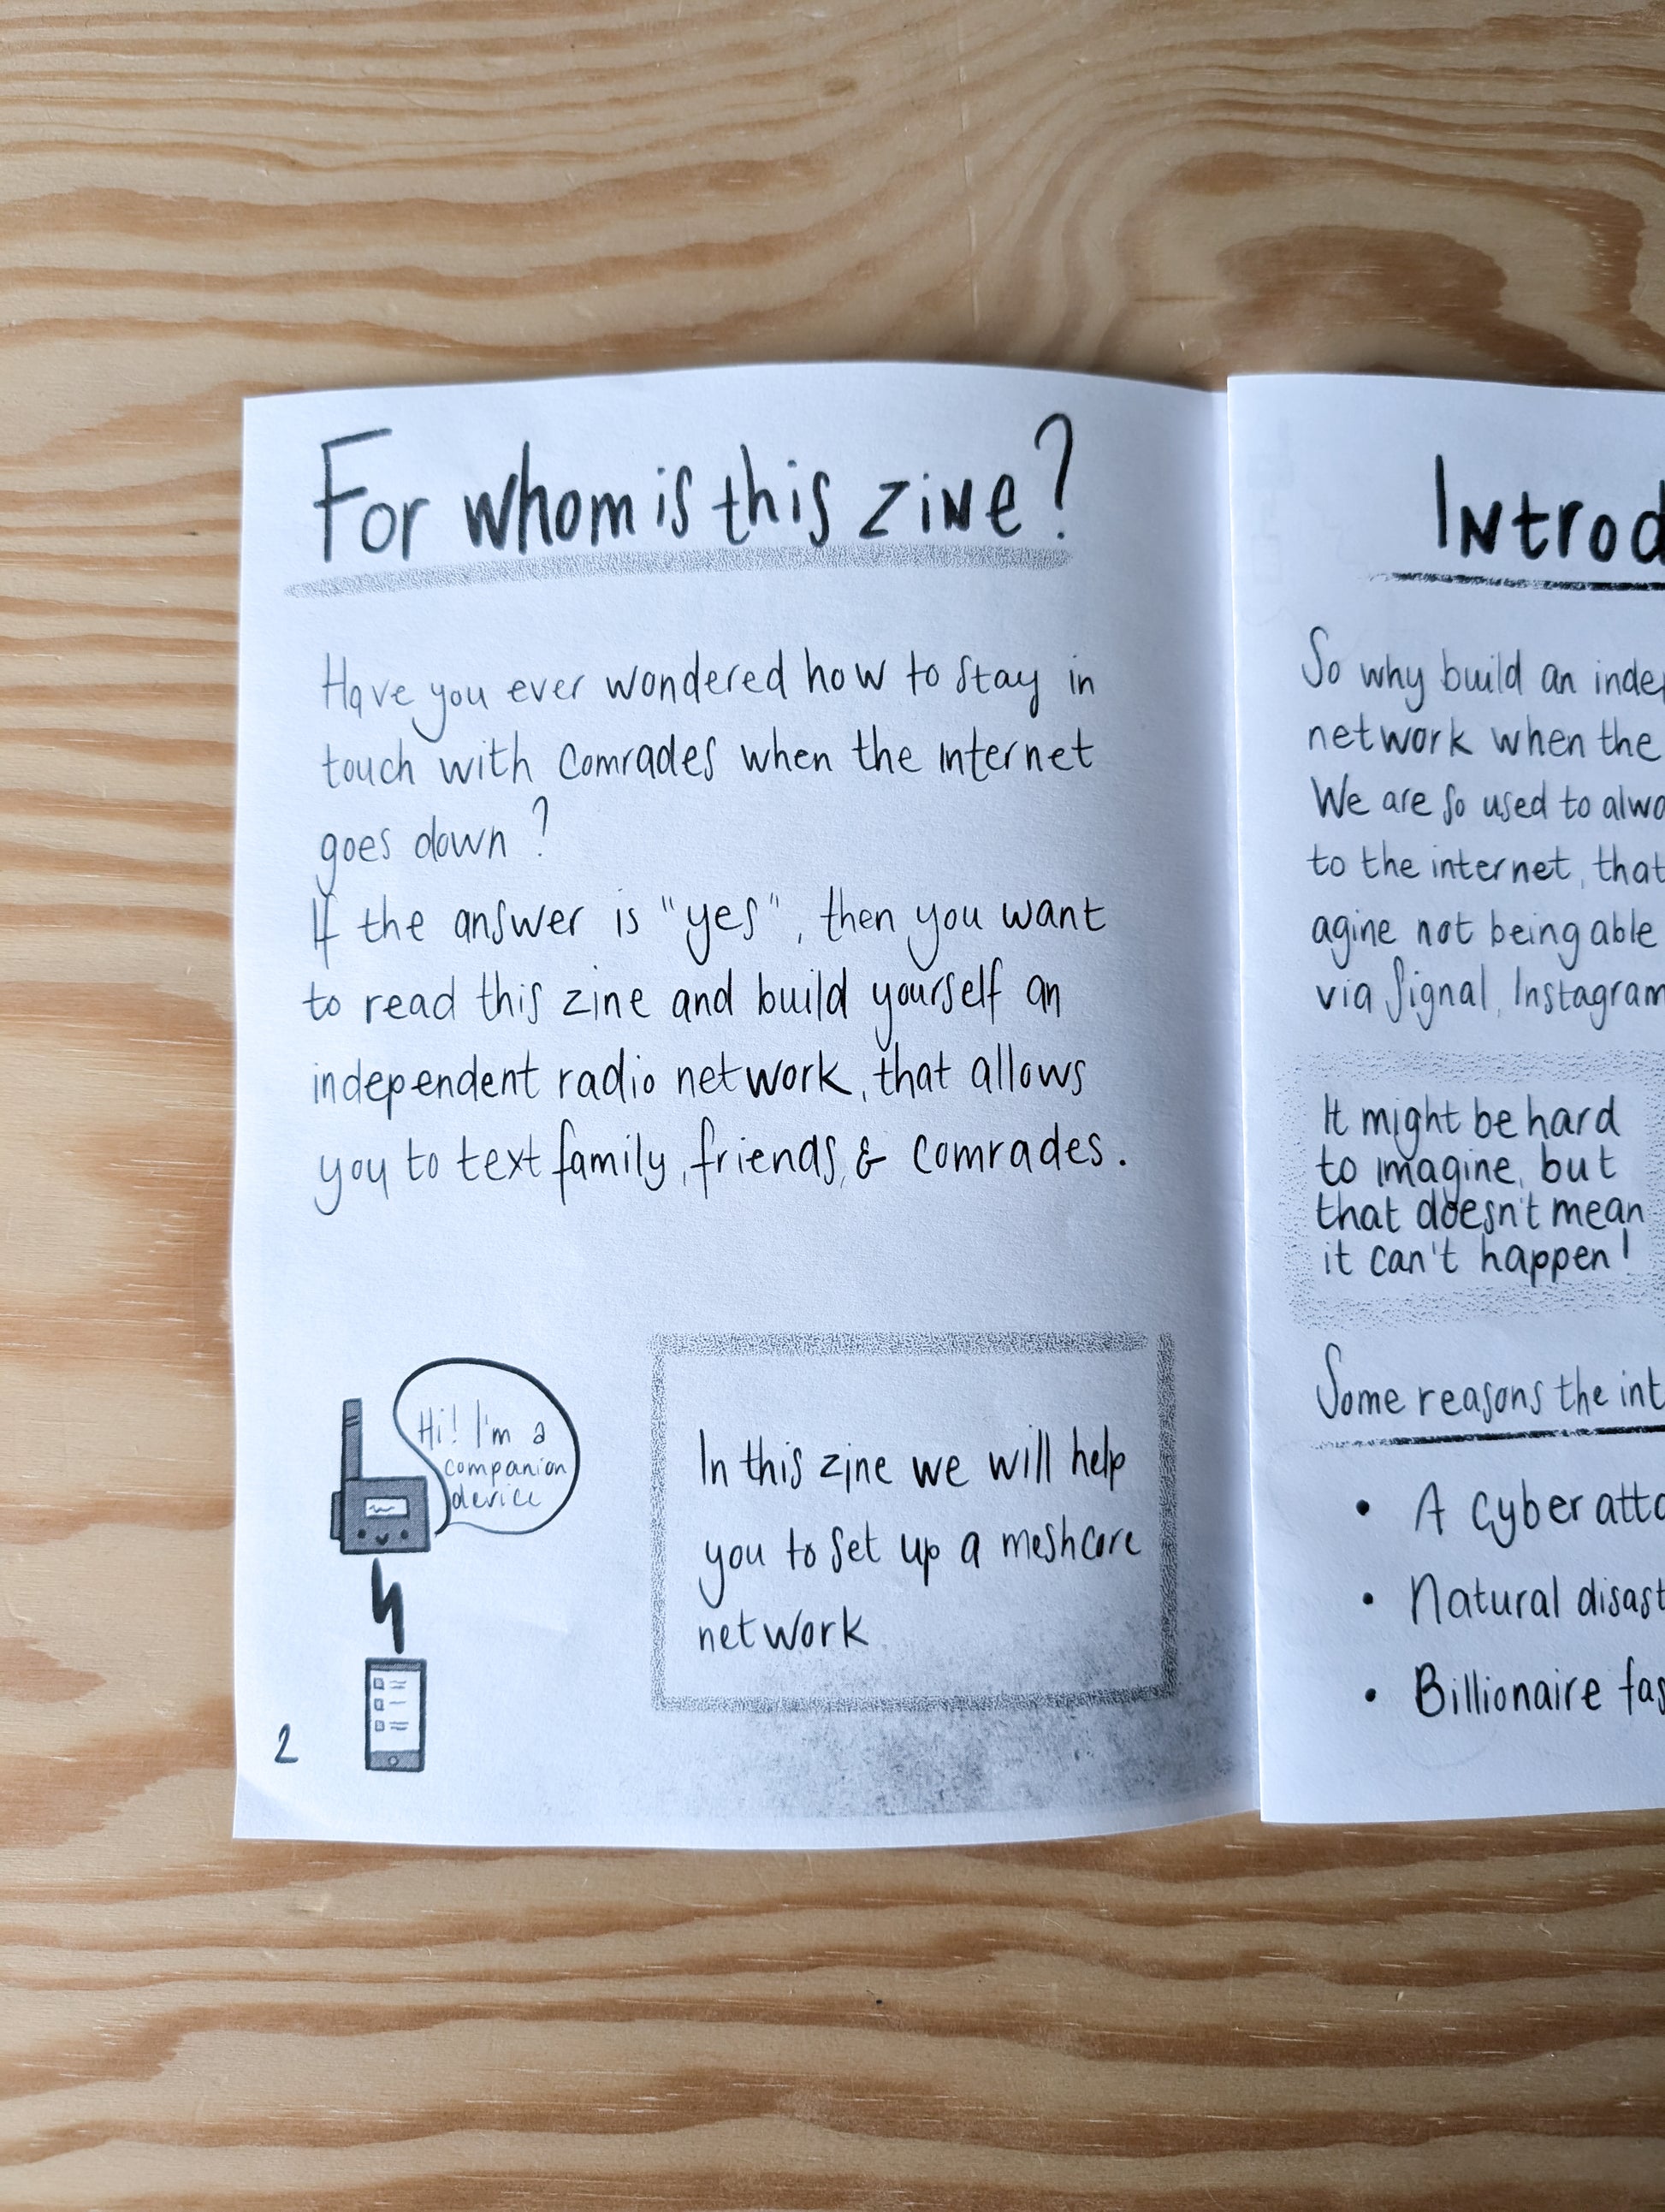 For whom is this zine?
Have you ever wondered how to stay in
touch with comrades when the internet
goes down?
If the answer is "yes", then you want
to read this zine and build yourself an
independent radio network, that allows
you to text family, friends, & comrades.
Hi! I'm a
companion
device
In this zine we will help
you to set up a meshcore
network
2
Introd
So why build an indep
network when the
We are so used to alwa
to the internet, that
agine not being able
via Signal, Instagram
It might be hard
to imagine, but
that doesn't mean
it can't happen!
Some reasons the int
• A cyber atta
• Natural disast
• Billionaire fas